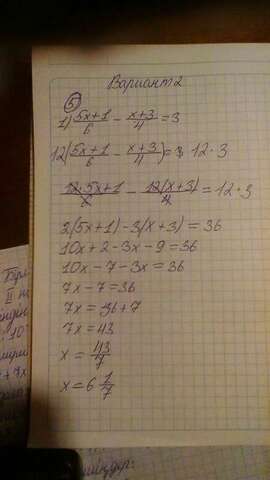 Вариант 2
⑤
1) (5x+1)/6 - (x+3)/4 = 3
12((5x+1)/6 - (x+3)/4) = 12·3
12·5x+1/6 - 12(x+3)/4 = 12·3
2(5x+1)-3(x+3)=36
10x+2-3x-9=36
10x-7-3x=36
7x-7=36
7x=36+7
7x=43
x=43/7
x=6 1/7